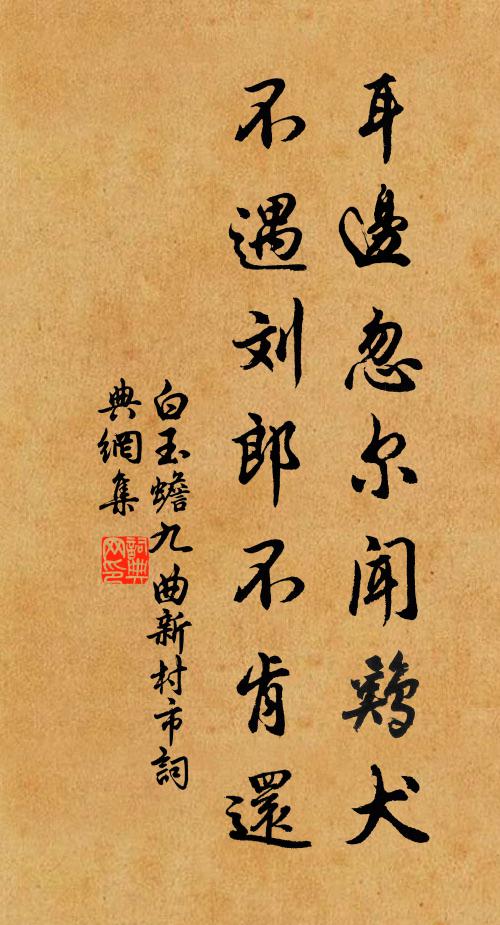 耳邊忽尔闻鷄犬
不遇刘郎不肯還
白玉蟾九曲新村市詞
典網集
詞典
网印